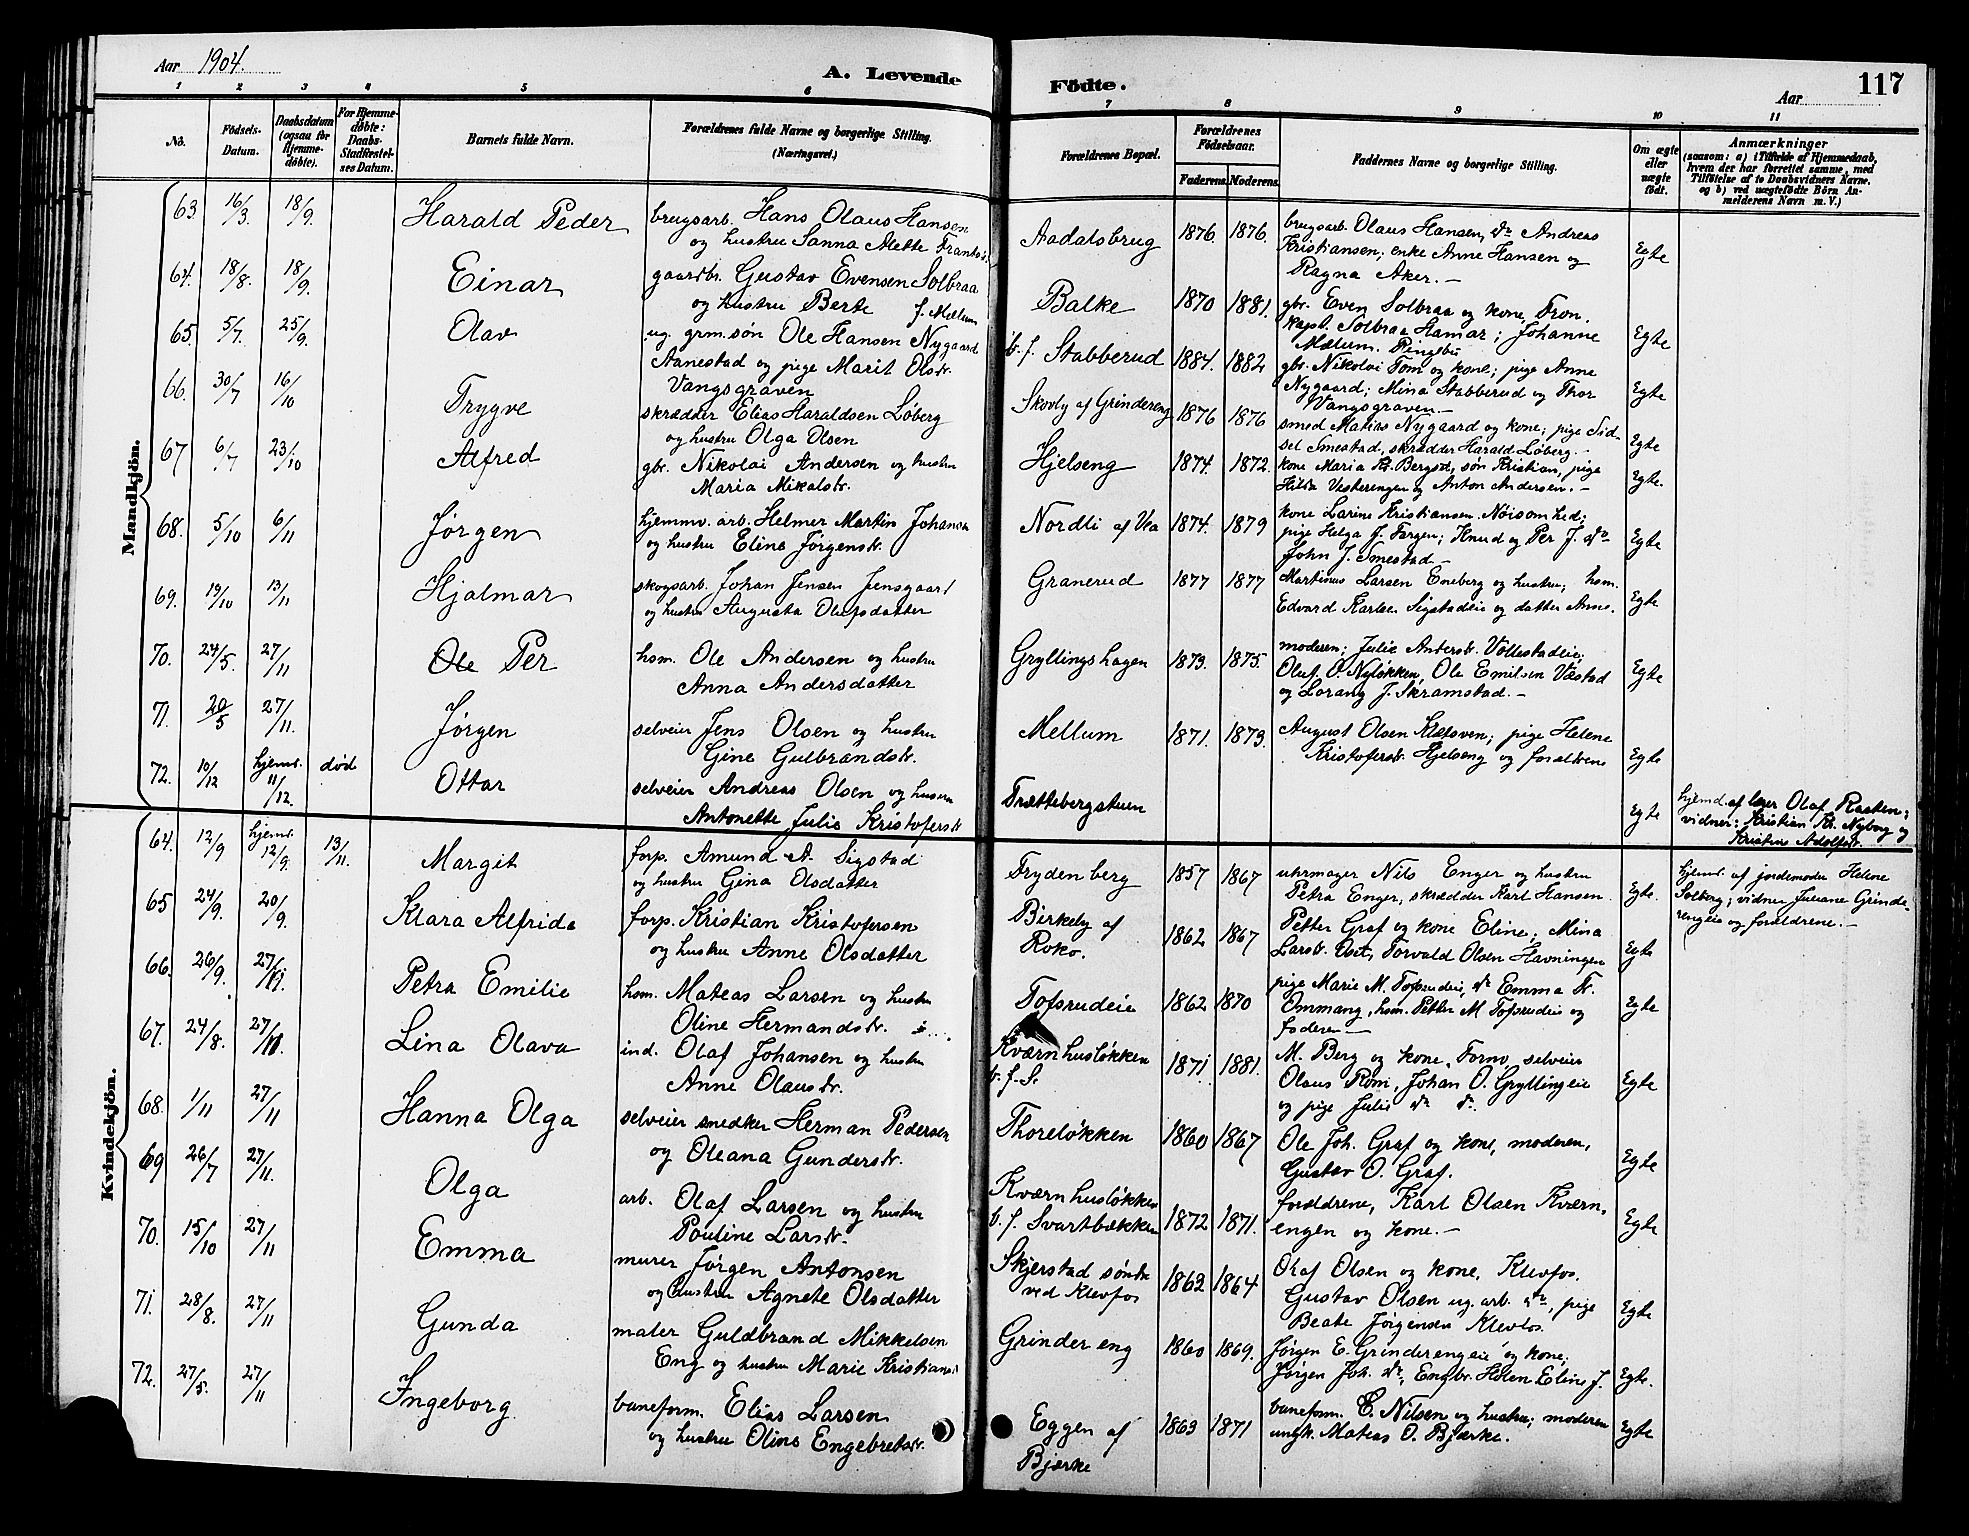 Aar 1904.
A. Levende
Födte.
Aar
117
1 2 3 4 5 6 7 8 9 10 11
No.
Födsels-
Datum.
Daabsdatum
(ogsaa for
Hjemme-
döbte).
For Hjemme-
döbte:
Daabs-
Stadfæstel-
ses Datum.
Barnets fulde Navn.
Forældrenes fulde Navne og borgerlige Stilling.
(Næringsvei.)
Forældrenes Bopæl.
Forældrenes
Födselsaar.
Faderens. Moderens.
Faddernes Navne og borgerlige Stilling.
Om ægte
eller
uægte
födt.
Anmærkninger
(saasom: a) i Tilfælde af Hjemmedaab,
hvem der har forrettet samme, med
Tilföielse af to Daabsvidners Navne,
og b) ved uægtefödte Börn An-
melderens Navn m. V.)
Mandkjön.
63. 16/3. 18/9. Harald Peder brugsarb. Hans Olaus Hansen
og hustru Sanna Mette
Aadalsbrug 1876. 1876. brugsarb. Olaus Hansen, do Andreas
Kristiansen; enke Anne Hansen og
Ragna Aker.— Egte
64. 18/8. 18/9. Einar gaardbr. Gustav Evensen Solbraa
og hustru Berte f. Mælum
Balke 1870 1881. gbr. Even Solbraa og kone, Tron.
kapt. Solbraa Hamar; Johanne
Mælum. Pingelbu Egte
65. 5/7. 25/9. Olav ug. grm.søn Ole Hansen Nygaard
Aanestad og pige Marit Olsdr.
Vangsgraven
t. f. Stabberud 1884. 1882 gbr. Nikolai Tom og kone; pige Anne
Nygaard; Mina Stabberud og Thor
Vangsgraven.— Egte
66. 30/7 16/10 Trygve skrædder Elias Haraldsen Løberg
og hustru Olga Olsen
Skovly af Grindereng 1876 1876 smed Matias Nygaard og kone; pige Sid-
sel Smestad, skrædder Harald Løberg.— Egte
67 6/7 23/10 Alfred gbr. Nikolai Andersen og hustru
Maria Mikalsdr.
Hjelseng 1874. 1872. kone Maria Kr. Bergsd, søn Kristian, pige
Hilda Vesterengen og Anton Andersen.— Egte.
68. 5/10 6/11 Jørgen hjemmv. arb. Helmer Martin Johansen
og hustru Eline Jørgensdr.
Nordli af Vea 1874. 1879 kone Larine Kristiansen Nøisomhed;
pige Helga J. Færgen; Knud og Per J. do
John J. Smestad— Egte
69. 19/10 13/11 Hjalmar skogsarb. Johan Jensen Jensgaard
og hustru Augusta Olufsdatter
Granerud 1877 1877 Martinus Larsen Eneberg og hustru; hsm.
Edvard Karlsen Sigstadeie og datter Anne. Egte
70. 24/5. 27/11 Ole Per hsm. Ole Andersen og hustru
Anna Andersdatter
Gryllingshagen 1873. 1875. moderen; Julie Andersdr. Vollestadeie;
Oluf O. Nyløkken, Ole Emilsen Væstad
og Lorang J. Skramstad.— Egte
71. 20/5 27/11. Jørgen selveier Jens Olsen og hustru
Gine Gulbrandsdr.
Mellum 1871. 1873. August Olsen Kletsven; pige Helene
Kristofersdr. Hjelseng og forældrene Egte
72. 10/12 hjemd. 11/12. død Ottar selveier Andreas Olsen og hustru
Antonette Julie Kristofersdr
Trættebergstuen Egte hjemd. af lærer Olaf Rasten;
vidner: Kristian Kr. Nyborg og
Kristine Adolfsdr.
Kvindekjön.
64. 12/9 hjemd. 12/9. 13/11. Margit forp. Amund A. Sigstad
og hustru Gina Olsdatter
Frydenberg 1857 1867 uhrmager Nils Enger og hustru
Petra Enger, skrædder Karl Hansen. Egte. hjemd. af jordemoder Helene
Solberg; vidner Juliane Grinde-
rengeie og forældrene.—
65 24/9. 20/9. Klara Alfrida forp. Kristian Kristofersen
og hustru Anne Olsdatter
Birkely af
Roko. 1862 1867 Petter Graf og kone Eline; Mina
Larsdr. Torvald Olsen Havningen Egte
66. 26/9. 27/11. Petra Emilie hsm. Mateas Larsen og hustru
Oline Hermandsdr.
Tofsrudeie 1862 1870 pige Marie M. Tofsrudeie, do Emma Fr.
Ommang, hsm. Petter M Tofsrudeie og
faderen— Egte
67. 24/8. 27/11. Lina Olava ind. Olaf Johansen og hustru
Anne Olausdr.
Kværnhusløkken
t. f. S. 1871. 1881. M. Berg og kone, Tomv, selveier
Olaus Rom, Johan O. Gryllingeie
og pige Julie do do. Egte
68. 1/11 27/11 Hanna Olga selveier snedker Herman Pedersen
og Oleana Gundersdr.
Thoreløkken 1860 1867 Ole Joh. Graf og kone, moderen,
Gustav O. Graf. Egte
69 26/7 27/11. Olga arb. Olaf Larsen og hustru
Pouline Larsdr.
Kværnhusløkken
t. f. Svartbækken 1872 1871. forældrene, Karl Olsen Kværn-
engen og kone.— Egte
70. 15/10 27/11 Emma murer Jørgen Antonsen
og hustru Agnete Olsdatter
Skjerstad søndre
ved Klevfos 1862 1864 Olaf Olsen og kone, Klevfos.
Gustav Olsen ug. arb. do, pige
Beate Jørgensen Klevfos. Egte
71. 28/8. 27/11 Gunda maler Guldbrand Mikkelsen
Eng og hustru Marie Kristiansd
Grindereng 1860 1869. Jørgen E. Grinderengeie og kone;
Jørgen Joh. do, Engbr. Helen Eline J. Egte.
72. 27/5. 27/11 Ingeborg. baneform. Elias Larsen
og hustru Oline Engebretsdr.
Eggen af
Bjærke 1863 1871 baneform. C. Nilsen og hustru; moderen
ungk. Mateas O. Bjærke. Egte